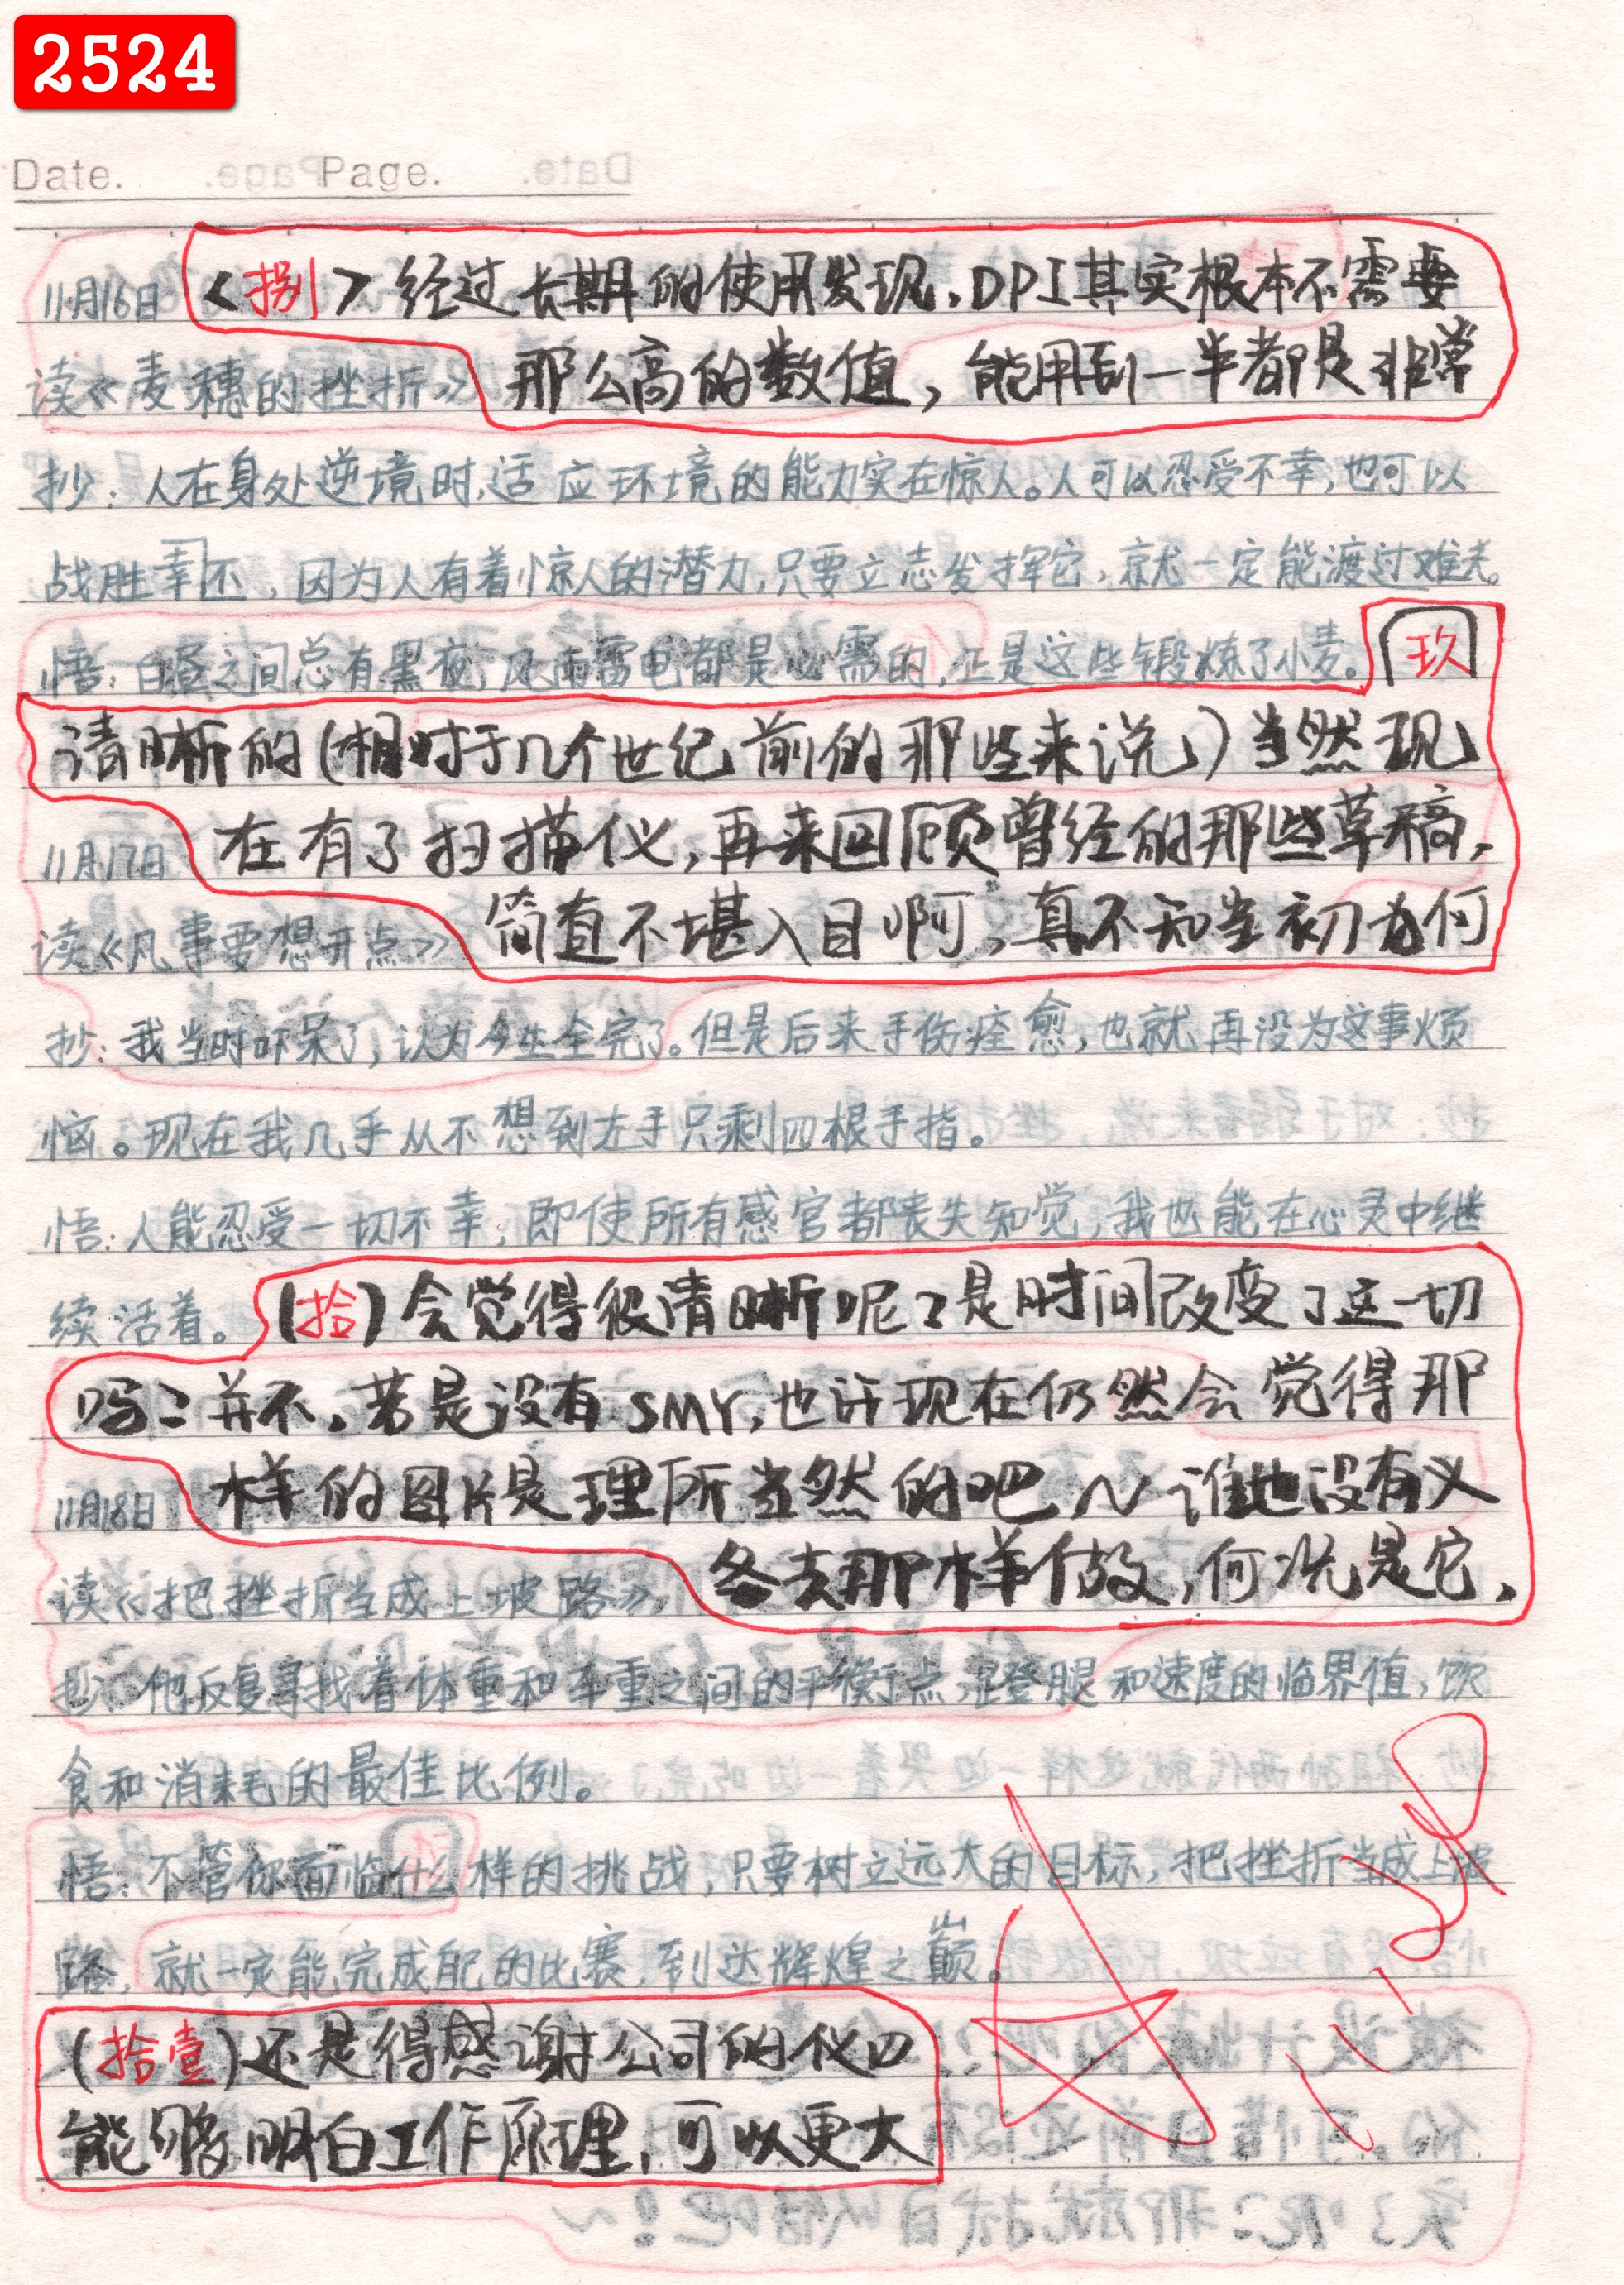 2524
Date. Page.
11月16日 <捌>经过长期的使用发现，DPI其实根本不需要
读《麦穗的挫折》 那么高的数值，能用到一半都是非常
抄：人在身处逆境时，适应环境的能力实在惊人。人可以忍受不幸，也可以
战胜幸不，因为人有着惊人的潜力，只要立志发挥它，就一定能渡过难关。
悟：白昼之间总有黑夜，风雨雷电都是必需的，正是这些锻炼了小麦。 玖
清晰的(相对于几个世纪前的那些来说)当然现
11月17日 在有了扫描仪，再来回顾曾经的那些草稿，
读《凡事要想开点》 简直不堪入目啊，真不知当初为何
抄：我当时吓呆了，认为今生全完了。但是后来手伤痊愈，也就再没为这事烦
恼。现在我几乎从不想到左手只剩四根手指。
悟：人能忍受一切不幸，即使所有感官都丧失知觉，我也能在心灵中继
续活着。 (拾)会觉得很清晰呢？是时间改变了这一切
吗？并不。若是没有SMY，也许现在仍然会觉得那
11月18日 样的图片是理所当然的吧~谁也没有义
读《把挫折当成上坡路》 务去那样做，何况是它，
抄：他反复寻找着体重和车重之间的平衡点，蹬腿和速度的临界值，饮
食和消耗的最佳比例。
悟：不管你面临什么样的挑战，只要树立远大的目标，把挫折当成上坡
路，就一定能完成配的比赛，到达辉煌之巅。
(拾壹)还是得感谢公司的仪四
能够明白工作原理，可以更大